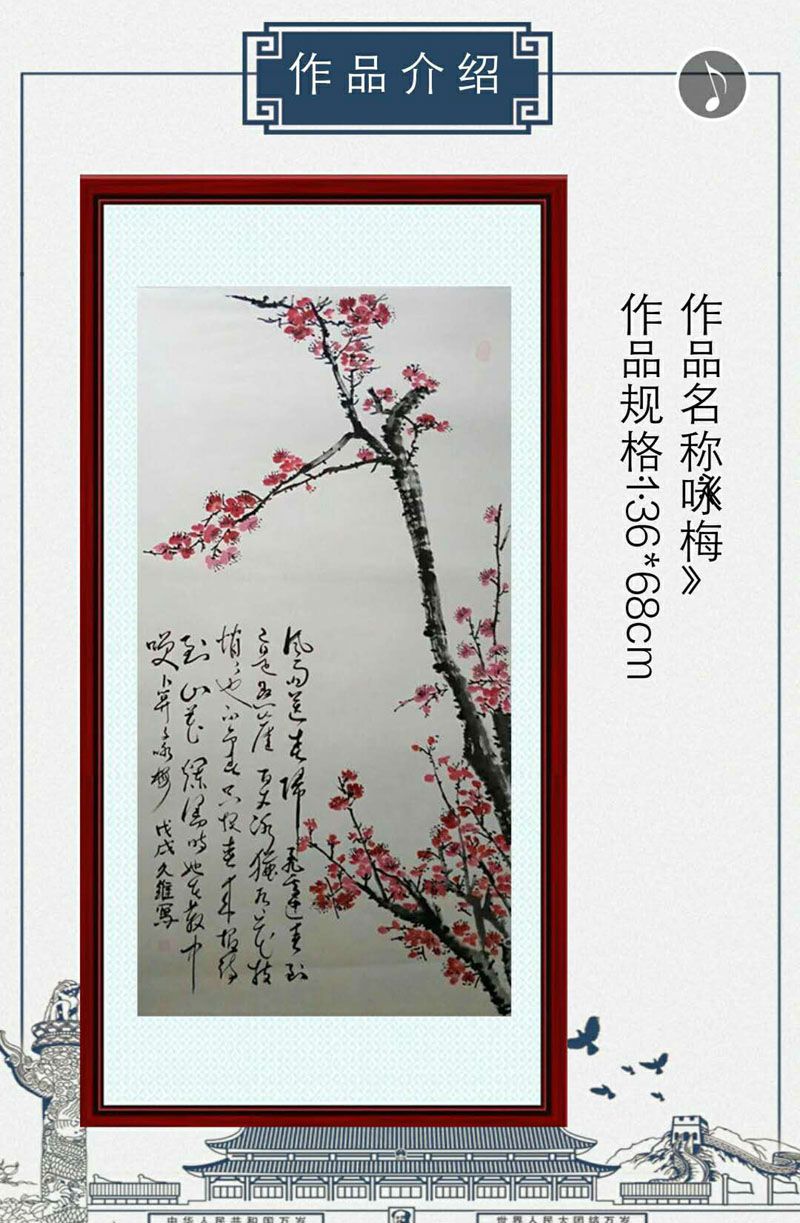 作品介绍
作品名称:《咏梅》
作品规格:1·36*68cm
風雨送春歸飛雪迎春到
已是悬崖百丈冰犹有花枝
俏俏也不争春只把春来报待
到山花烂漫时她在丛中
笑 卜算子咏梅 戊戌久維寫
中华人民共和国万岁
世界人民大团结万岁